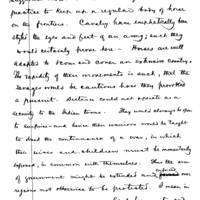 practice to keep up a regular body of horse
on the frontiers. Cavalry have emphatically been
styled the eyes and feet of an army; such they
would certainly prove here – Horses are well
adapted to scour and cover an extensive country.
The rapidity of their movements is such, that the
savages would be cautious how they provoked
a pursuit. Distance could not operate as a
security to the Indian towns. They would always be open
to surprise and hence their warriors would be taught
to dread the continuance of a war, in which
their wives and children must be momentarily
exposed, in common with themselves. Thus the arm
of government might be extended and enforced over
regions not otherwise to be penetrated. I mean in